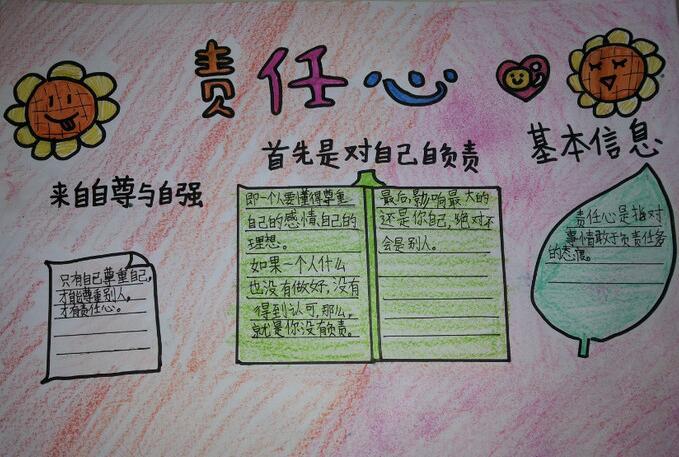 责任心
首先是对自己自负责
基本信息
来自自尊与自强
只有自己尊重自己，
才能尊重别人，
才有责任心。
即一个人要懂得尊重
自己的感情、自己的
理想。
如果一个人什么
也没有做好，没有
得到认可，那么，
就是你没有负责。
最后，影响最大的
还是你自己，绝对不
会是别人。
责任心是指对
事情敢于负责任务
的态度。